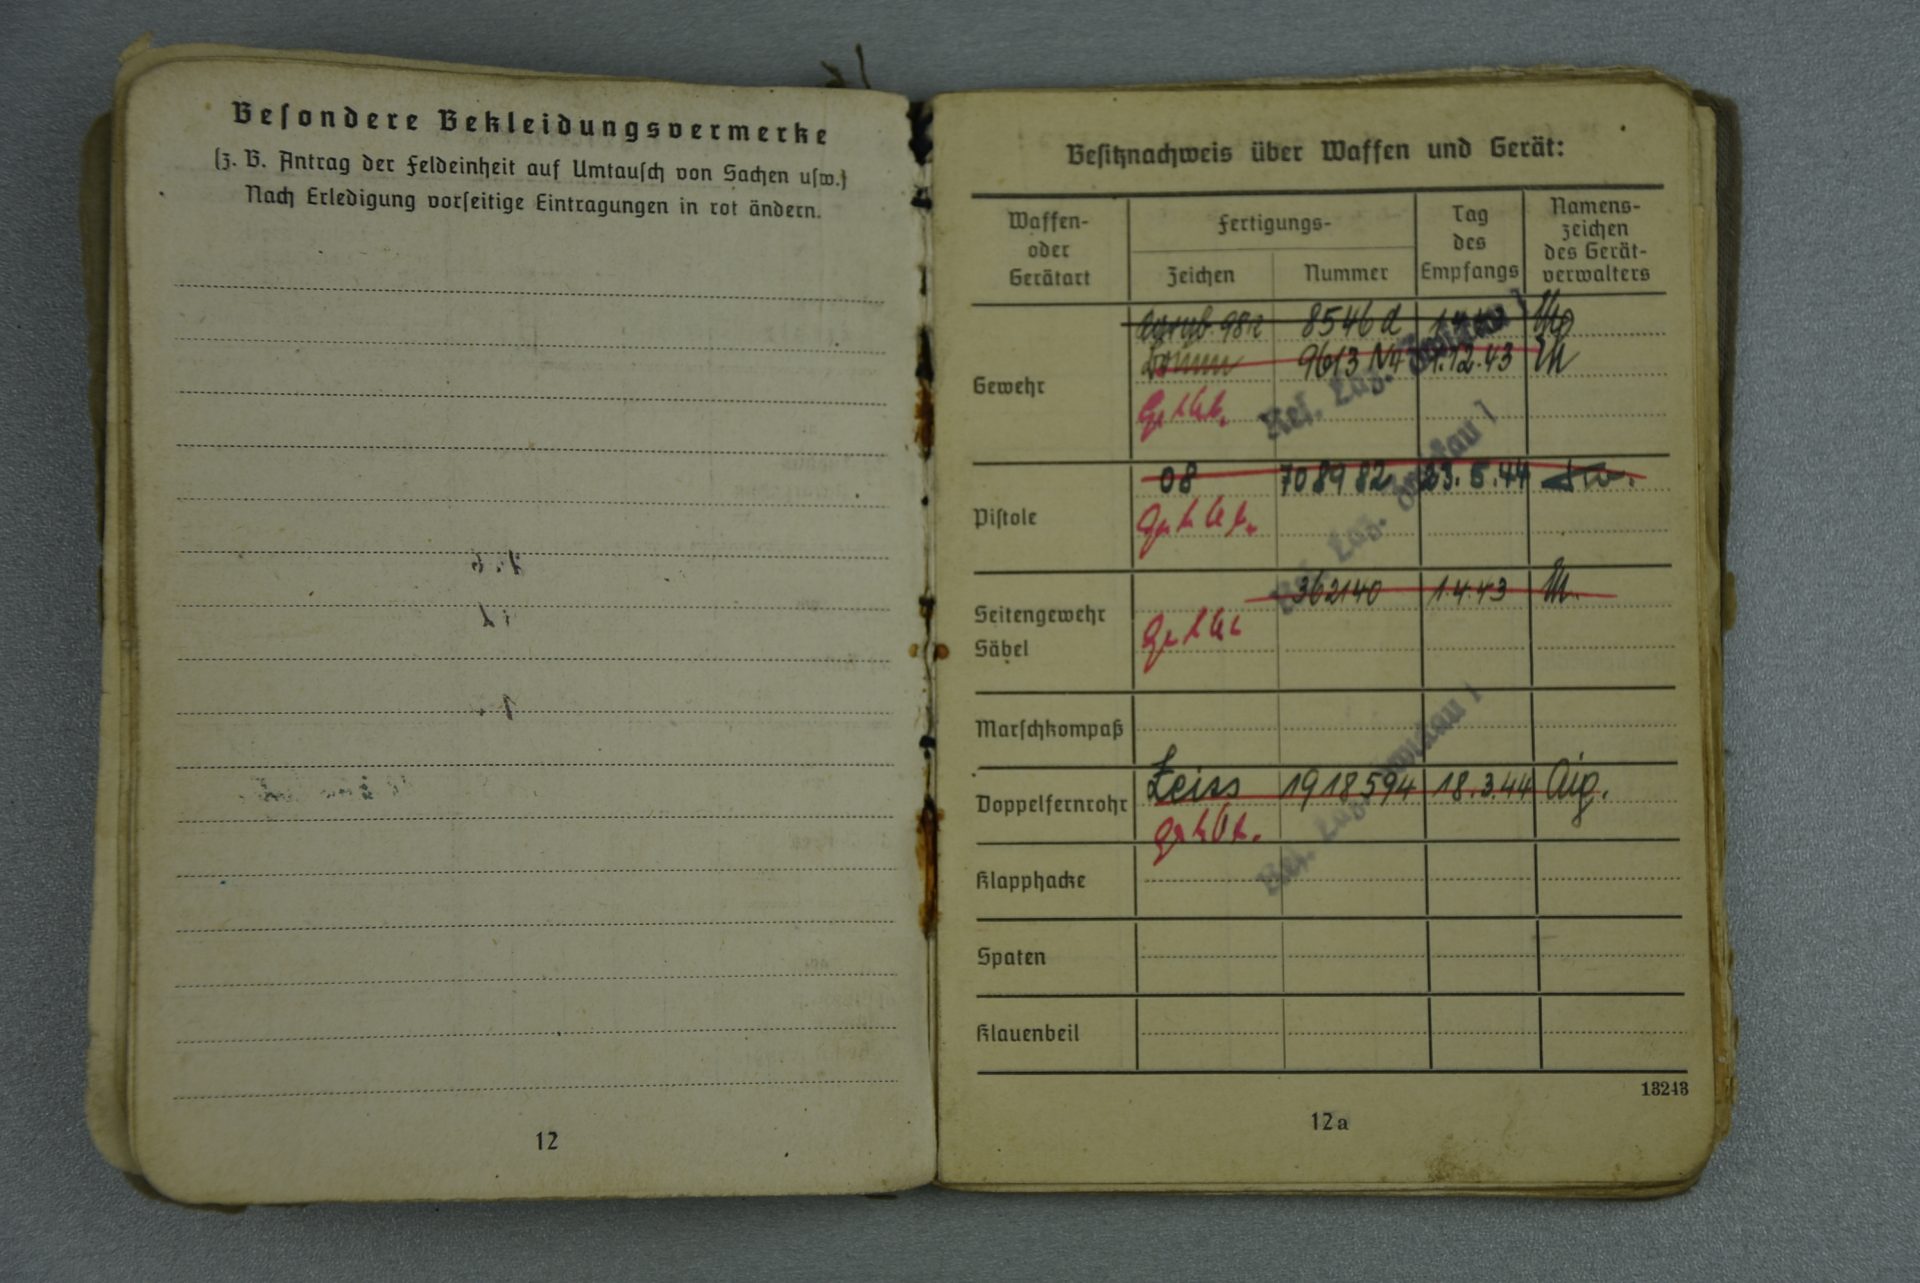 Besondere Bekleidungsvermerke
(z. B. Antrag der Feldeinheit auf Umtausch von Sachen usw.)
Nach Erledigung vorseitige Eintragungen in rot ändern.
12
Besitznachweis über Waffen und Gerät:
Waffen- oder Gerätart
Fertigungs-
Zeichen
Nummer
Tag des Empfangs
Namens- zeichen des Gerät- verwalters
Gewehr
8546 d
9613 1.12.43
Pistole
08 708982 23.5.44
Seitengewehr
Säbel
362140 1.4.43
Marschkompaß
Doppelfernrohr
Zeiss 1918594 18.3.44 Aig.
Klapphacke
Spaten
Klauenbeil
Res. Laz. Zwickau 1
Res. Laz. Zwickau 1
Res. Laz. Zwickau 1
13243
12a